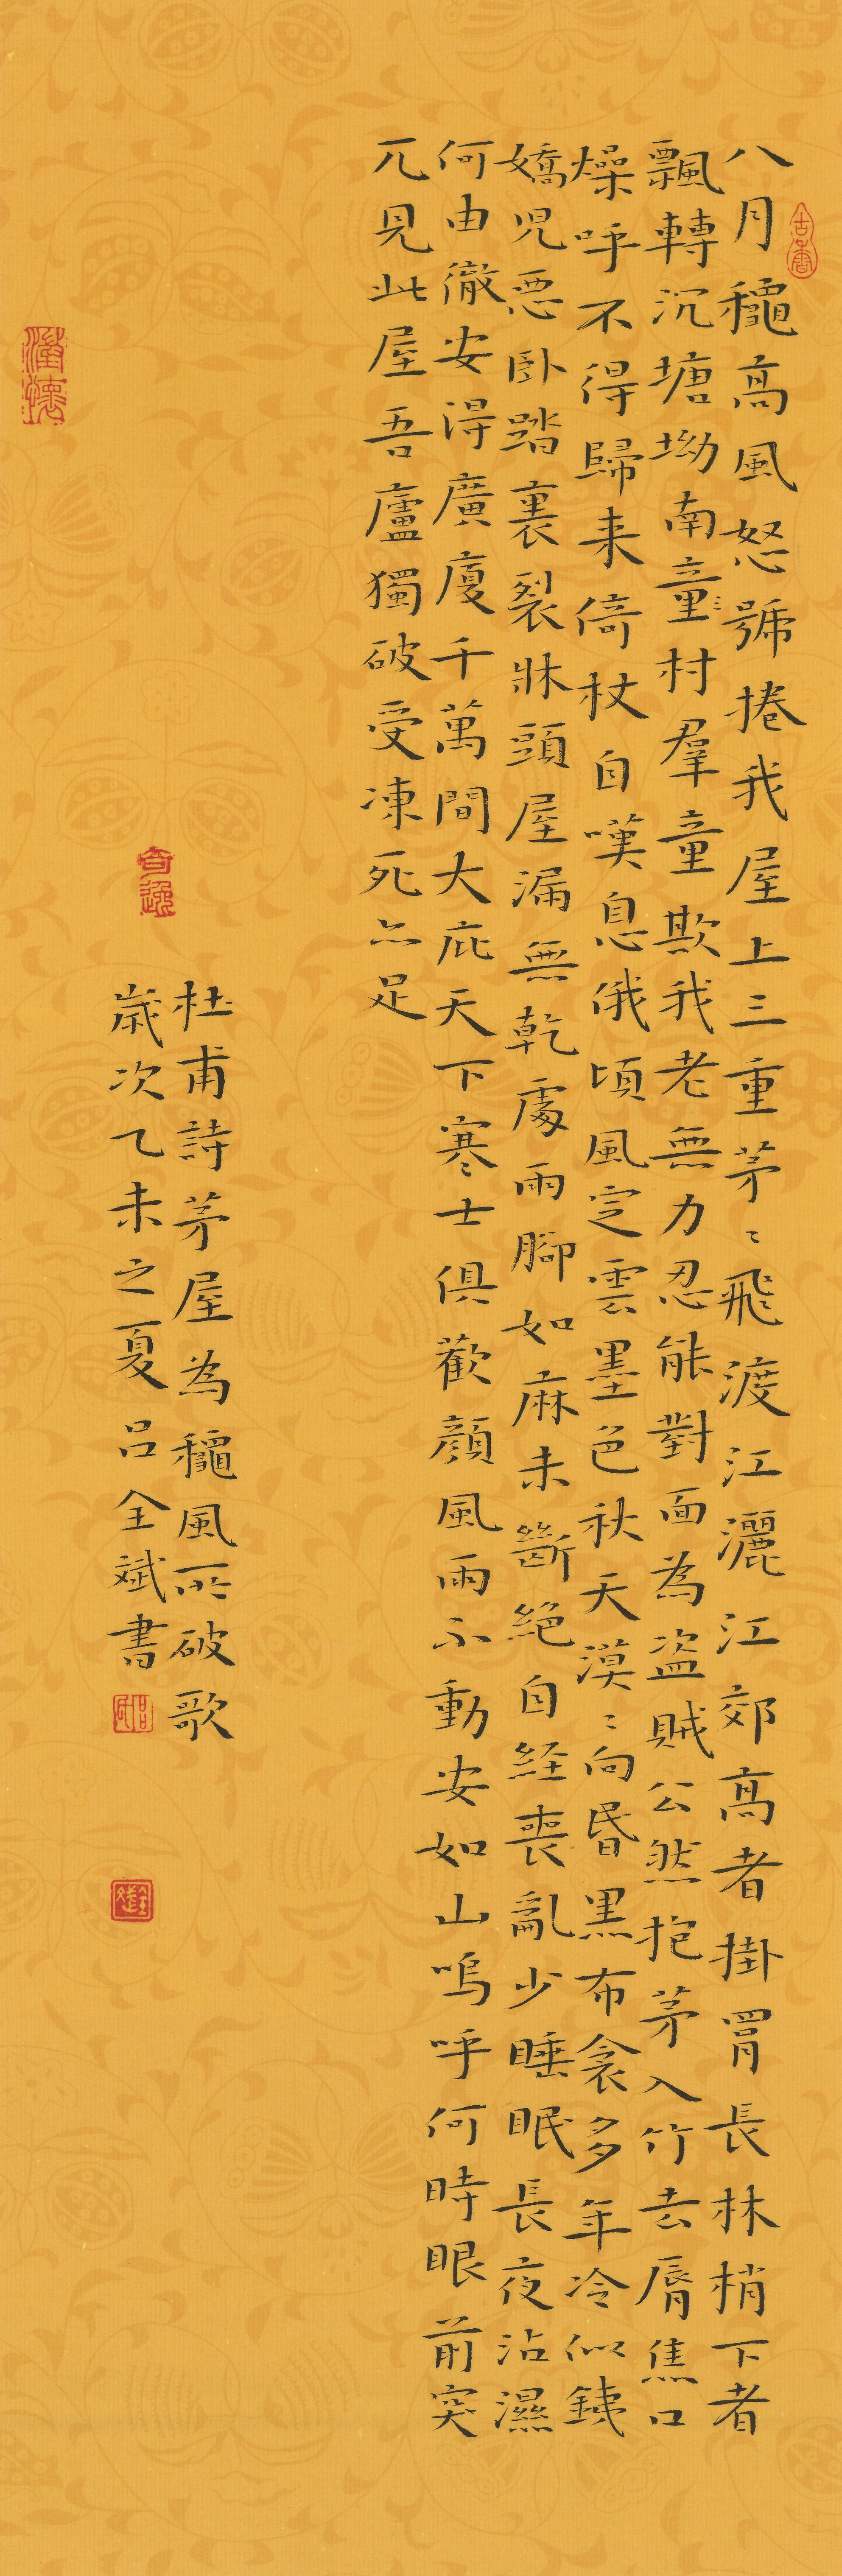 八月穐高風怒號捲我屋上三重茅〻飛渡江灑江郊高者掛罥長林梢下者
飄轉沉塘坳南童村羣童欺我老無力忍能對面為盗賊公然抱茅入竹去脣焦口
燥呼不得歸来倚杖自嘆息俄頃風定雲墨色秋天漠〻向昬黒布衾多年冷似銕
嬌児惡卧踏裏裂牀頭屋漏無乾處雨腳如麻未斷絶自経喪亂少睡眠長夜沾濕
何由徹安得廣廈千萬間大庇天下寒士俱歡顔風雨不動安如山嗚呼何時眼前突
兀見此屋吾廬獨破受凍死亦足
奇逸
杜甫詩茅屋為穐風所破歌
歲次乙未之夏吕全斌書